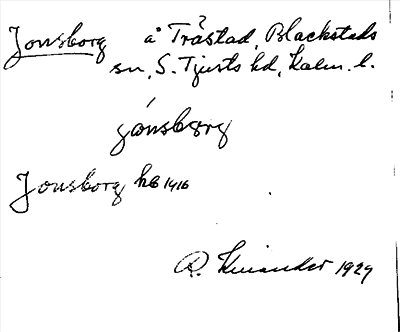 Jonsborg å Tråstad, Blackstads
sn, S. Tjusts hd, Kalm. l.
jonsborg
Jonsborg hb 1916
R. Kinander 1929